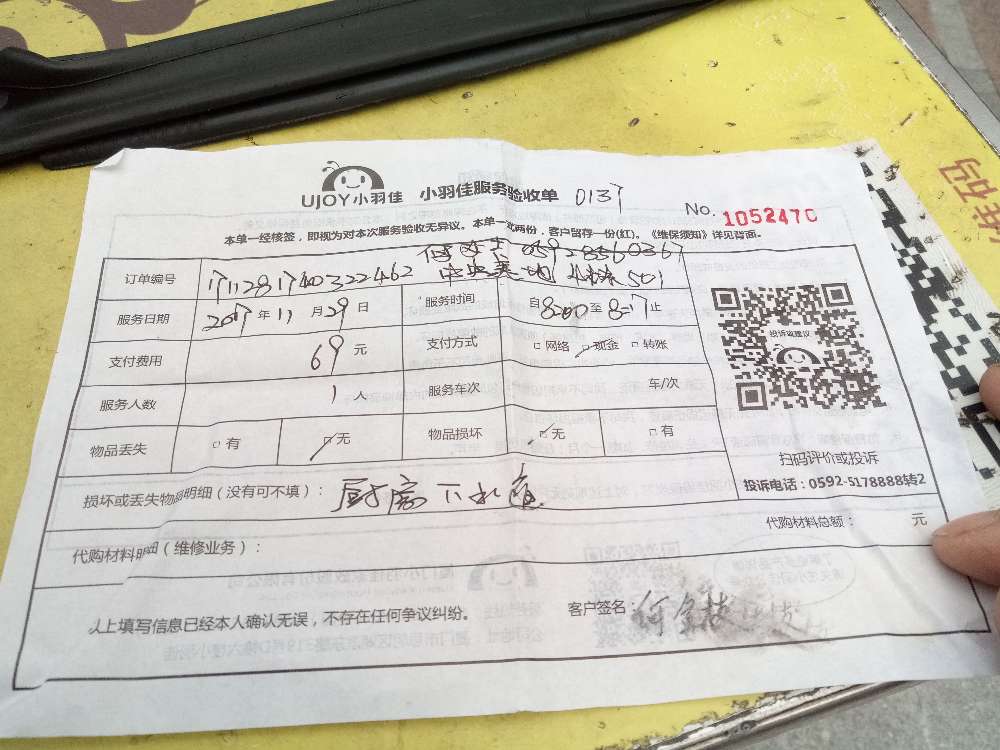 UJOY小羽佳 小羽佳服务验收单 0137
No. 1052470
本单一经核签，即视为对本次服务验收无异议。本单一式两份，客户留存一份(红)。《维保须知》详见背面。
订单编号 1711281740322462 501
服务日期 2017年11月29日 服务时间 自8:00至8=17止
支付费用 69元 支付方式 网络 现金 转账
服务人数 1人 服务车次 车/次
物品丢失 有 无 物品损坏 无 有
投诉或建议
扫码评价或投诉
投诉电话：0592-5178888转2
损坏或丢失物品明细（没有可不填）： 厨房下水道
代购材料明细（维修业务）：
代购材料总额： 元
以上填写信息已经本人确认无误，不存在任何争议纠纷。 客户签名：